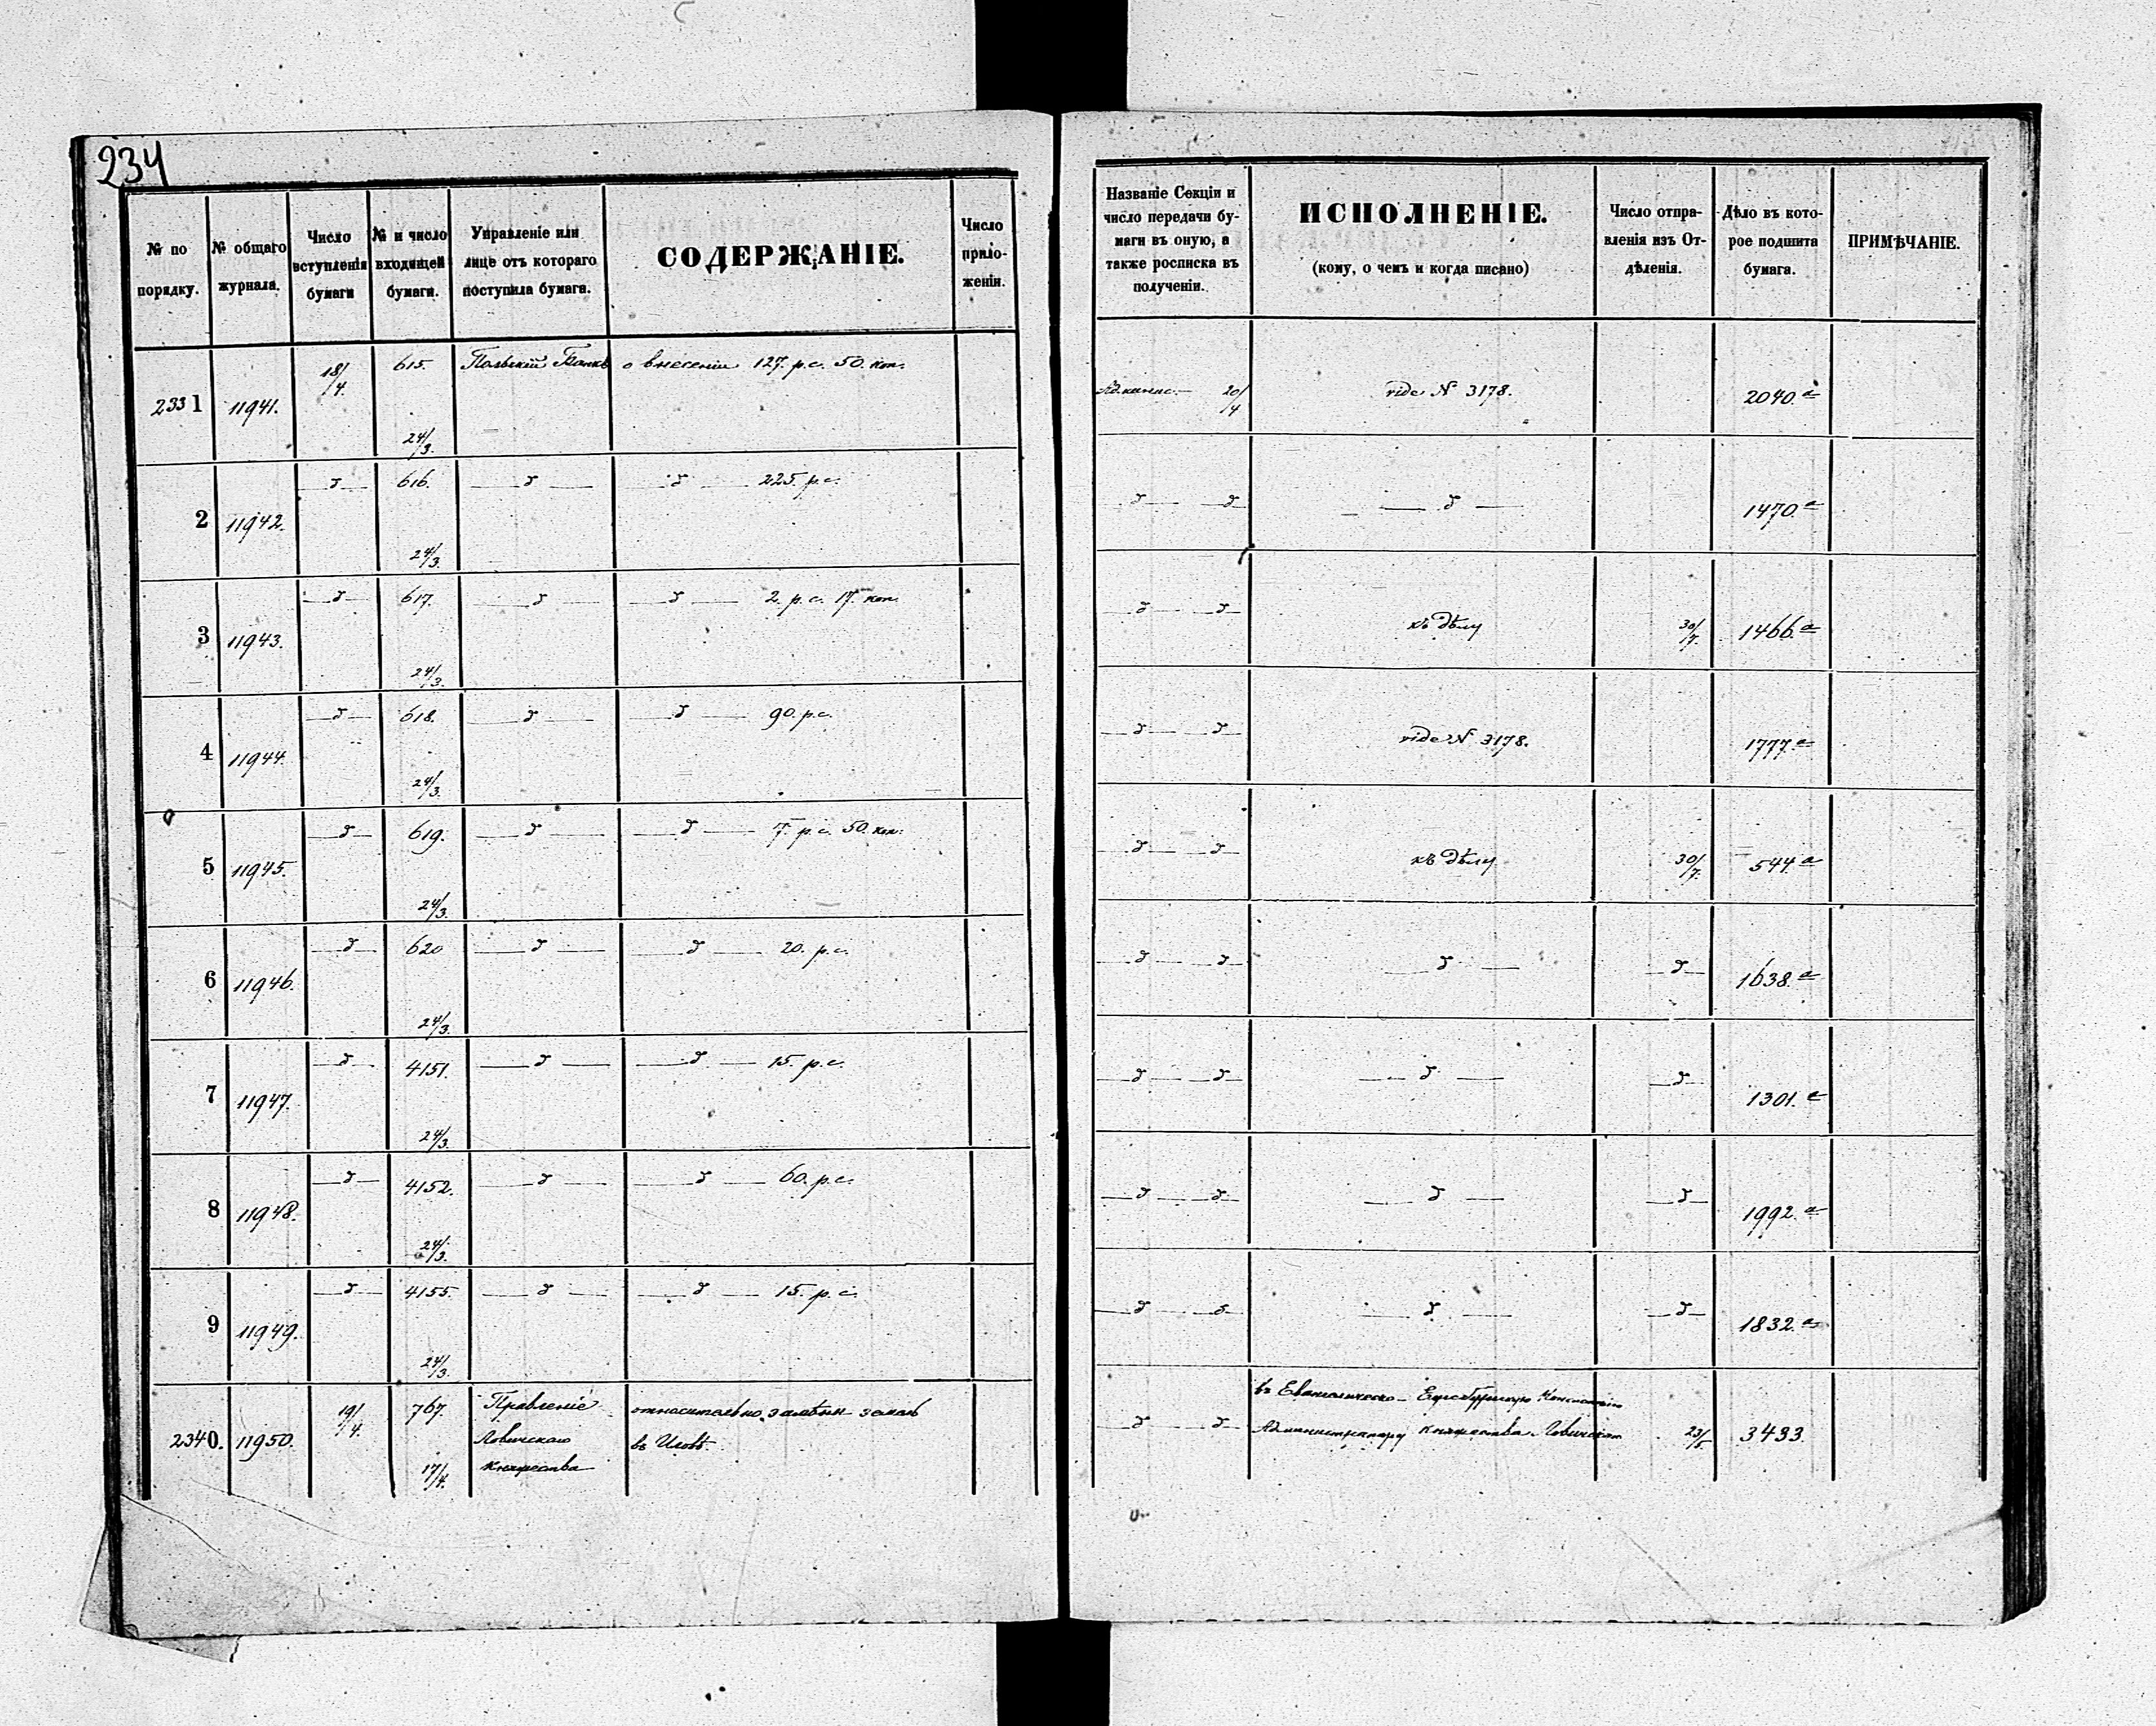 234
№ по порядку. № общаго журнала. Число вступленія бумаги № и число входящей бумаги. Управленіе или лице отъ котораго поступила бумага. СОДЕРЖАНІЕ. Число приложеніи.
Названіе Секціи и число передачи бумаги въ оную, а также росписка въ полученіи. ИСПОЛНЕНІЕ. (кому, о чемъ и когда писано) Число отправленія изъ Отдѣленія. Дѣло въ которое подшита бумага. ПРИМѢЧАНІЕ.
2331 11941. 18/4. 615. 24/3. Польскій Банкъ о внесеніи 127. р.с. 50. коп. 20/4 vide N 3178. 2040.a
2 11942. — д — 616. 24/3. — д — — д — 225. р.с. — д — — д — — д — 1470.a
3 11943. — д — 617. 24/3. — д — — д — 2. р.с. 17. коп. — д — — д — къ дѣлу 30/7. 1466.a
4 11944. — д — 618. 24/3. — д — — д — 90. р.с. — д — — д — vide N 3178. 1777.a
5 11945. — д — 619. 24/3. — д — — д — 7. р.с. 50. коп. — д — — д — къ дѣлу 30/7. 544.a
6 11946. — д — 620 24/3. — д — — д — 20. р.с. — д — — д — — д — — д — 1638.a
7 11947. — д — 4151. 24/3. — д — — д — 15. р.с. — д — — д — — д — — д — 1301.a
8 11948. — д — 4152. 24/3. — д — — д — 60. р.с. — д — — д — — д — — д — 1992.a
9 11949. — д — 4155. 24/3. — д — — д — 15. р.с. — д — — д — — д — — д — 1832.a
2340. 11950. 19/4. 767. 17/4. Правленіе Ловичскаго Княжества относительно земель въ — д — — д — въ Евангелическо- Администратору Княжества Ловичскаго 23/5 3433.